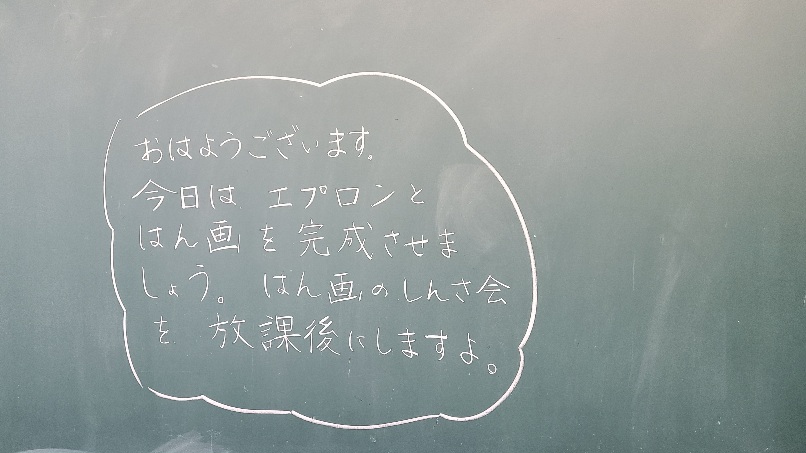 おはようございます。
今日は エプロンと
はん画 を 完成させま
しょう。 はん画のしんさ会
を 放課後にしますよ。